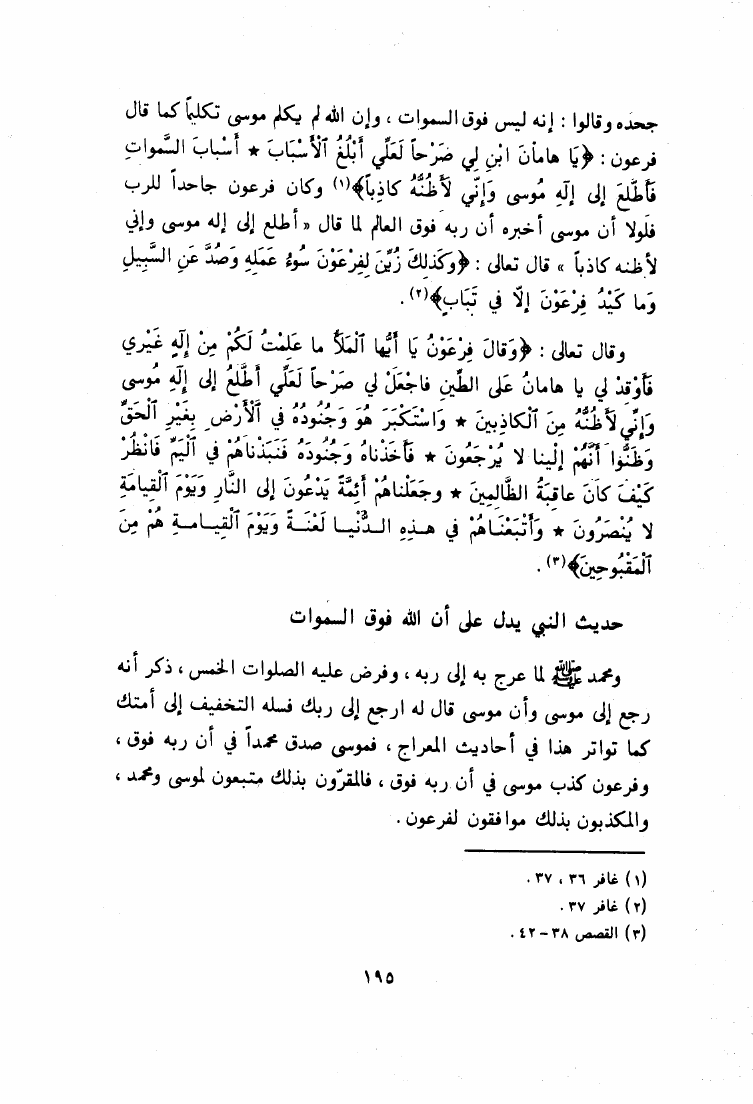 جحده وقالوا : إنه ليس فوق السموات ، وإن الله لم يكلم موسى تكليماً كما قال
فرعون : ﴿يَا هامانُ ابْنِ لي صَرْحاً لَعَلِّي أَبْلُغُ ٱلْأَسْبَابَ * أَسْبَابَ السَّمواتِ
فَأَطَّلِعَ إلى إلَهِ مُوسى وَإِنِّي لَأظُنُّهُ كاذِباً﴾(١) وكان فرعون جاحداً للرب
فلولا أن موسى أخبره أن ربه فوق العالم لما قال « أطلع إلى إله موسى وإني
لأظنه كاذباً » قال تعالى : ﴿وَكَذلكَ زُيِّنَ لِفِرْعَوْنَ سُوءُ عَمَلِهِ وَصُدَّ عَنِ السَّبِيلِ
وَما كَيْدُ فِرْعَوْنَ إلَّا في تَبَابٍ﴾(٢) .
وقال تعالى : ﴿وَقالَ فِرْعَوْنُ يَا أَيُّها ٱلْمَلَأُ ما عَلِمْتُ لَكُمْ مِنْ إِلَهٍ غَيْري
فَأَوْقِدْ لي يا هامانُ عَلى الطِّينِ فاجْعَلْ لي صَرْحاً لَعَلِّي أَطَّلِعُ إلى إلَهِ مُوسى
وَإِنِّي لَأظُنُّهُ مِنَ ٱلْكاذِبينَ * وَاسْتَكْبَرَ هُوَ وَجُنُودُهُ في ٱلْأَرْضِ بِغَيْرِ ٱلْحَقِّ
وَظَنُّوا أَنَّهُمْ إلَيْنا لا يُرْجَعُونَ * فَأَخَذْناهُ وَجُنُودَهُ فَنَبَذْناهُمْ في ٱلْيَمِّ فَانْظُرْ
كَيْفَ كَانَ عاقِبَةُ الظَّالِمِينَ * وجَعَلْناهُمْ أَئِمَّةً يَدْعُونَ إلى النَّارِ وَيَوْمَ ٱلْقِيامَةِ
لا يُنْصَرُونَ * وَأَتْبَعْنَاهُمْ في هـذِهِ الـدُّنْيـا لَعْنَـةً وَيَوْمَ ٱلْقِيـامـةِ هُمْ مِنَ
ٱلْمَقْبُوحِينَ﴾(٣) .
حديث النبي يدل على أن الله فوق السموات
ومحمد ﷺ لما عرج به إلى ربه ، وفرض عليه الصلوات الخمس ، ذكر أنه
رجع إلى موسى وأن موسى قال له ارجع إلى ربك فسله التخفيف إلى أمتك
كما تواتر هذا في أحاديث المعراج ، فموسى صدق محمداً في أن ربه فوق ،
وفرعون كذب موسى في أن ربه فوق ، فالمقرّون بذلك متبعون لموسى ومحمد ،
والمكذبون بذلك موافقون لفرعون .
(١) غافر ٣٦ ، ٣٧ .
(٢) غافر ٣٧ .
(٣) القصص ٣٨ – ٤٢ .
١٩٥